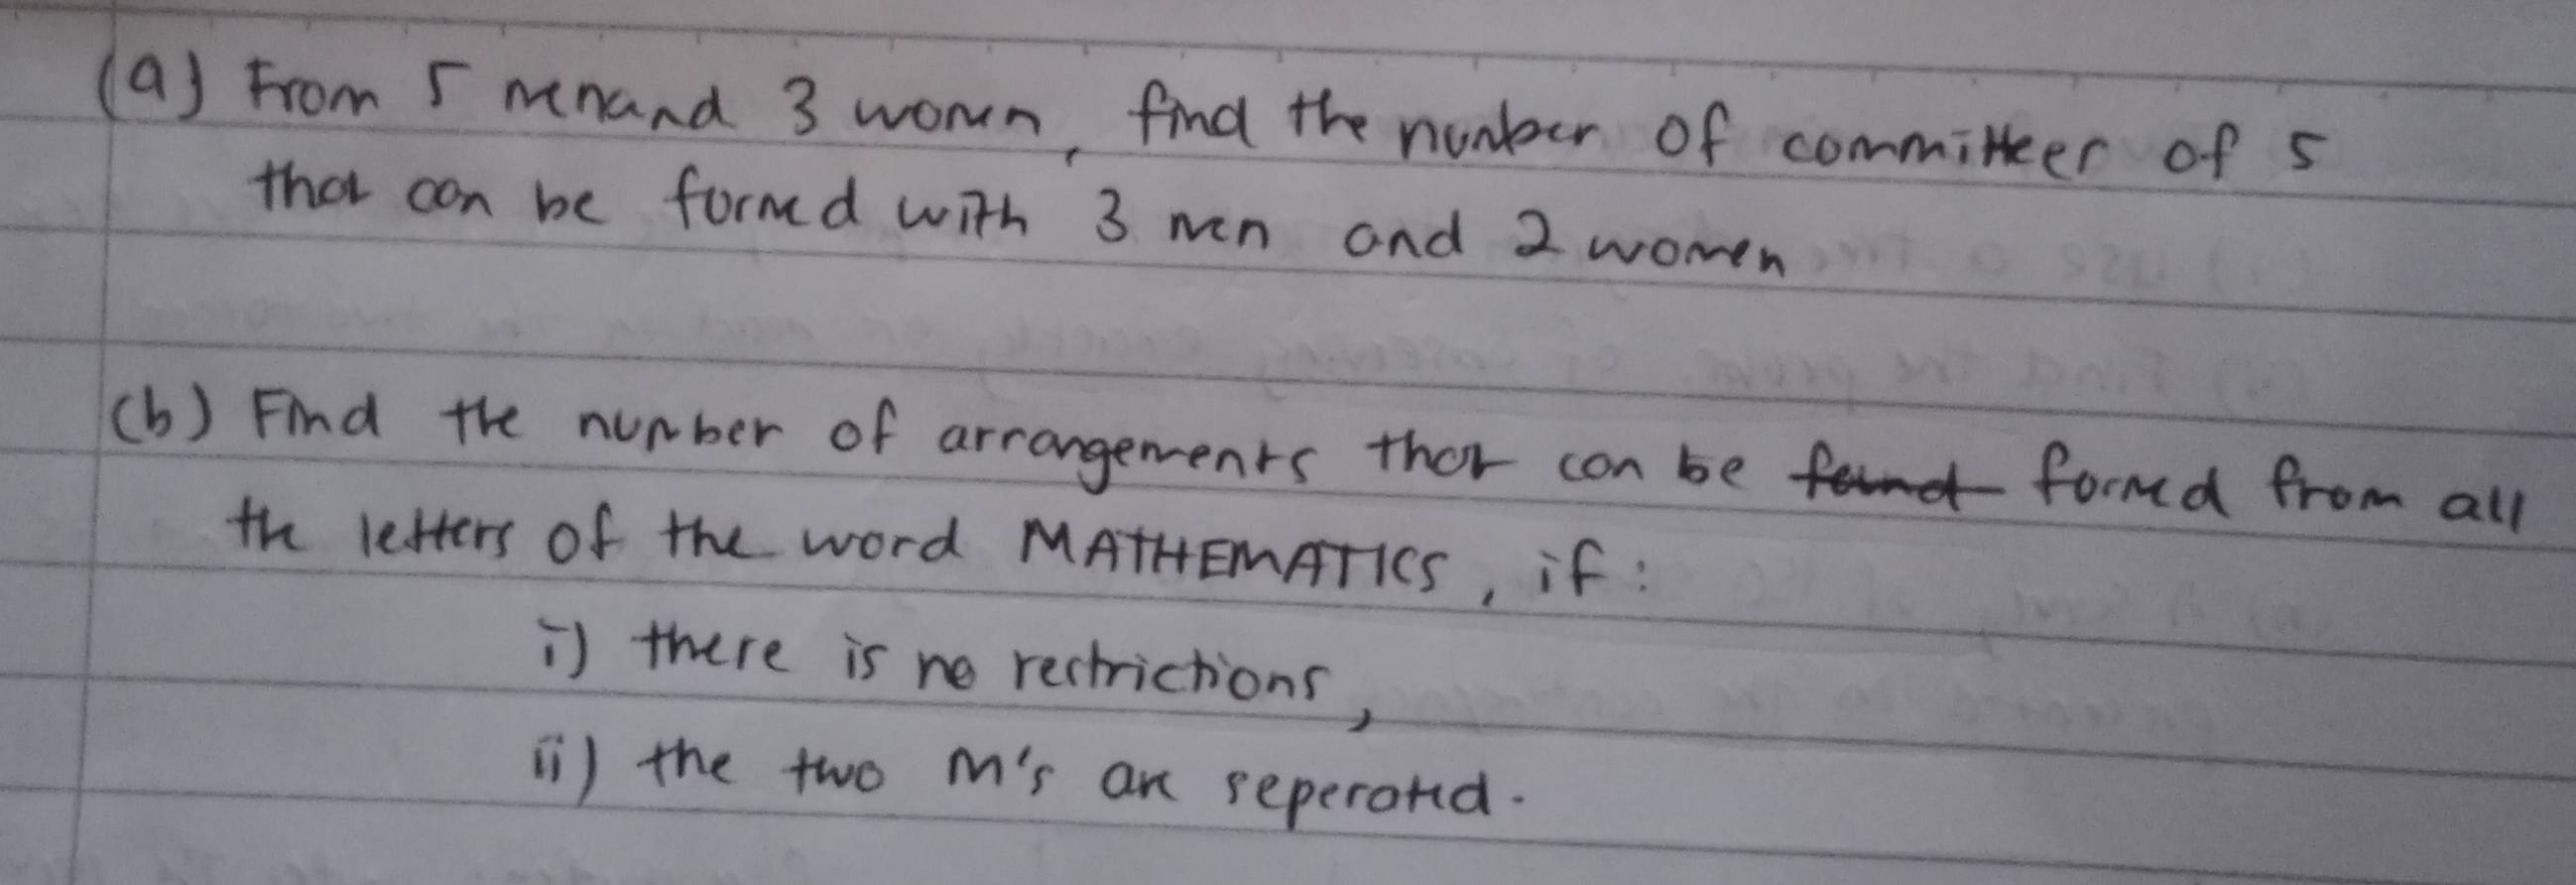 (a) From 5 men and 3 women, find the number of committees of 5
that can be formed with 3 men and 2 women
(b) Find the number of arrangements that can be found formed from all
the letters of the word MATHEMATICS, if:
i) there is no restrictions,
ii) the two M's are seperated.